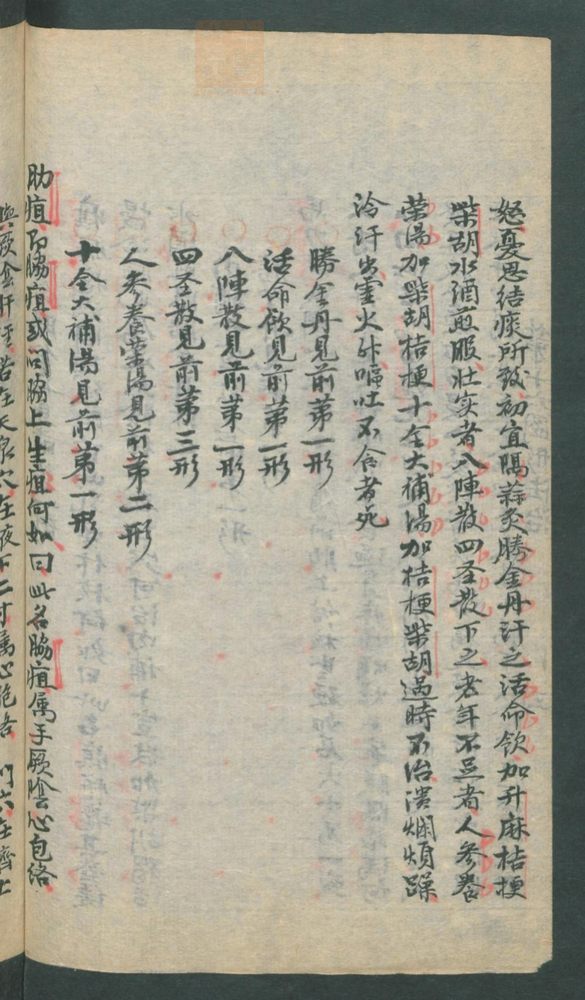 怒憂思結痰所致初宜隔蒜灸勝金丹汗之活命飲加升麻桔梗
柴胡水酒煎服壯实者八陣散四圣散下之老年不足者人參養
荣湯加柴胡桔梗十全大補湯加桔梗柴胡過時不治潰爛煩躁
冷汗出虛火外嘔吐不食者死
勝金丹見前第一形
活命飲見前第一形
八陣散見前第一形
四圣散見前第三形
人參養荣湯見前第二形
十全大補湯見前第一形
肋疽即脇疽或问脇上生疽何如曰此名脇疽属手厥陰心包絡